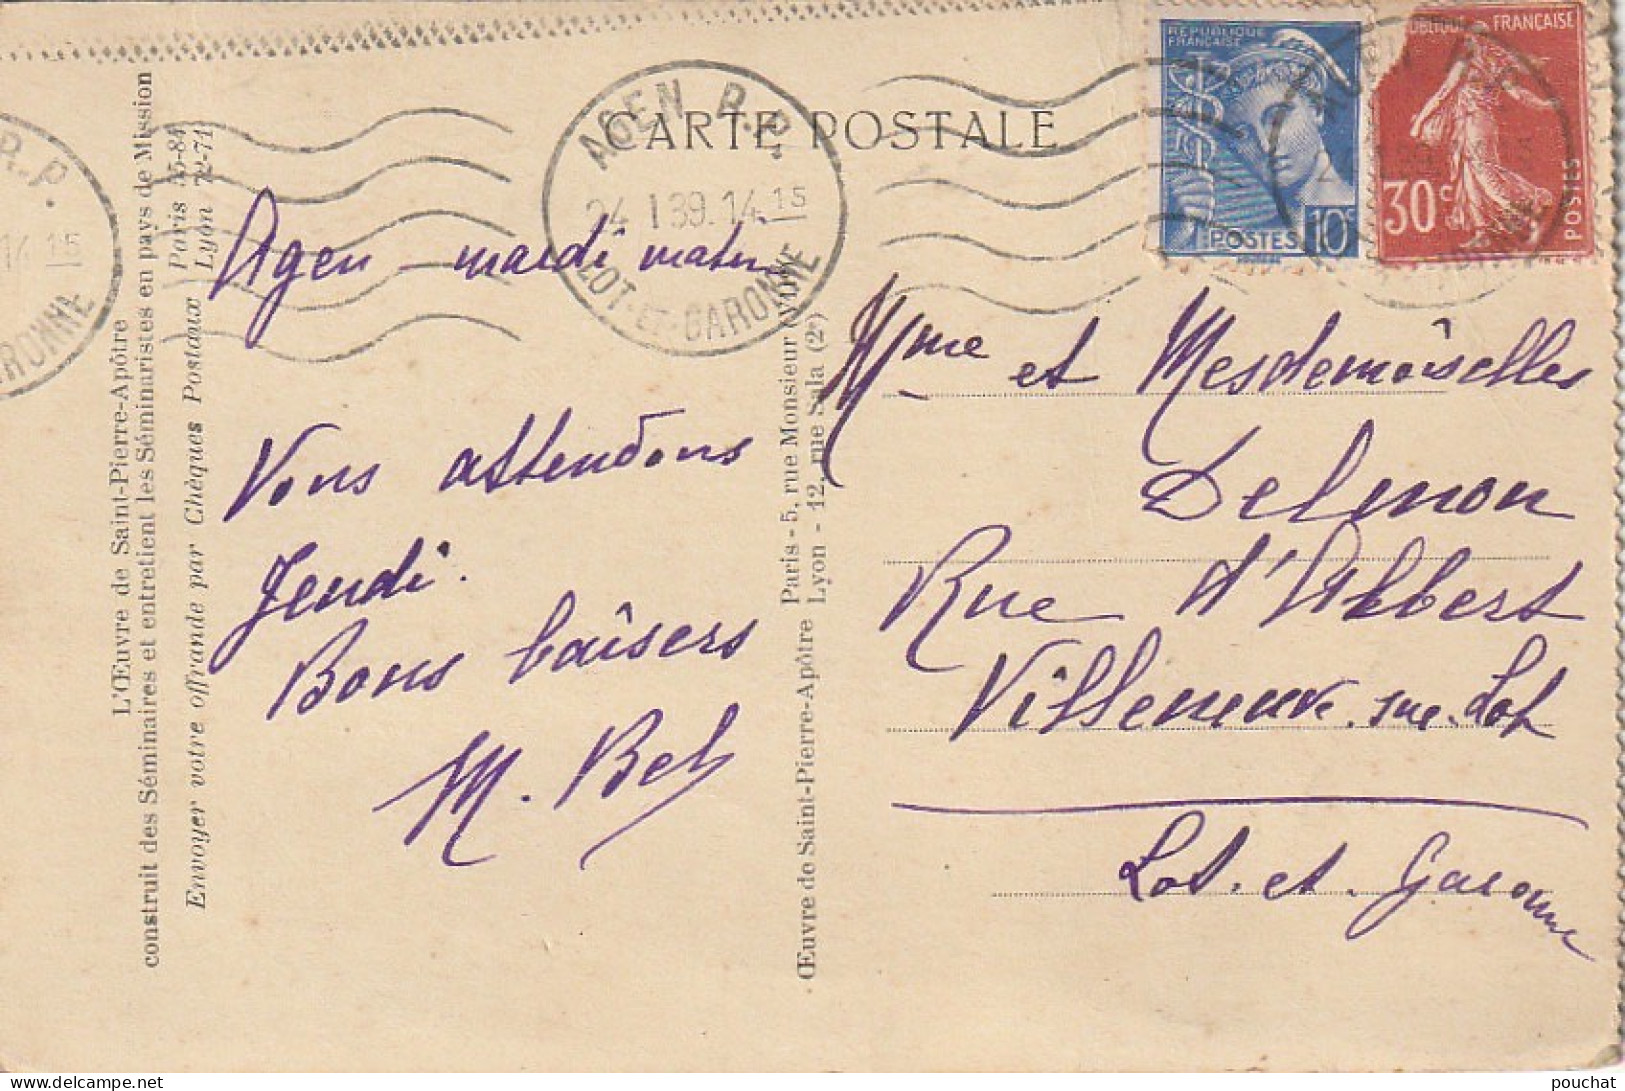 CARTE POSTALE
AGEN R.P.
24 - 1 39.14 15
LOT-ET-GARONNE
R.P.
14 15
RONNE
REPUBLIQUE
FRANÇAISE
POSTES 10c
FRANÇAISE
30c
POSTES
L'Œuvre de Saint-Pierre-Apôtre
construit des Séminaires et entretient les Séminaristes en pays de Mission
Envoyer votre offrande par Chèques Postaux
Paris 55-84
Lyon 72-71
Agen - mardi matin
Vous attendons
Jeudi.
Bons baisers
M. Bel
Œuvre de Saint-Pierre-Apôtre
Paris - 5, rue Monsieur
Lyon - 12, rue Sala (2e)
Mme et Mesdemoiselles
Delmon
Rue d'Albert
Villeneuve-sur-Lot
Lot-et-Garonne
pouchat
www.delcampe.net